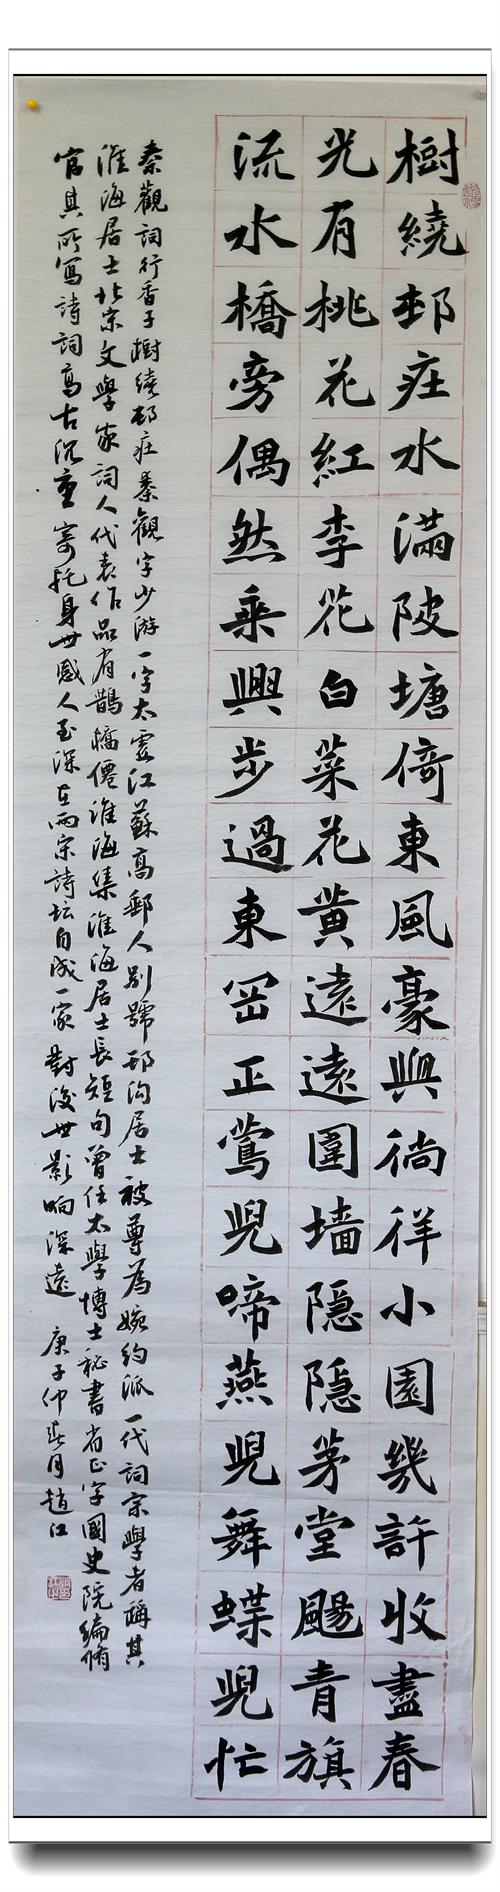 樹繞邨庄水滿陂塘倚東風豪興徜徉小園幾許收盡春
光有桃花紅李花白菜花黄遠遠圍墙隐隐茅堂颺青旗
流水橋旁偶然乘興步過東岡正鶯兒啼燕兒舞蝶兒忙
秦觀詞行香子樹繞邨庄秦觀字少游一字太虛江蘇高郵人别號邗沟居士被尊為婉約派一代詞宗學者稱其
淮海居士北宋文學家詞人代表作品有鵲橋僊淮海集淮海居士長短句曾任太學博士秘書省正字國史院编脩
官其所寫詩詞高古沉重寄托身世感人至深在兩宋詩坛自成一家對後世影响深遠 庚子仲春月趙江